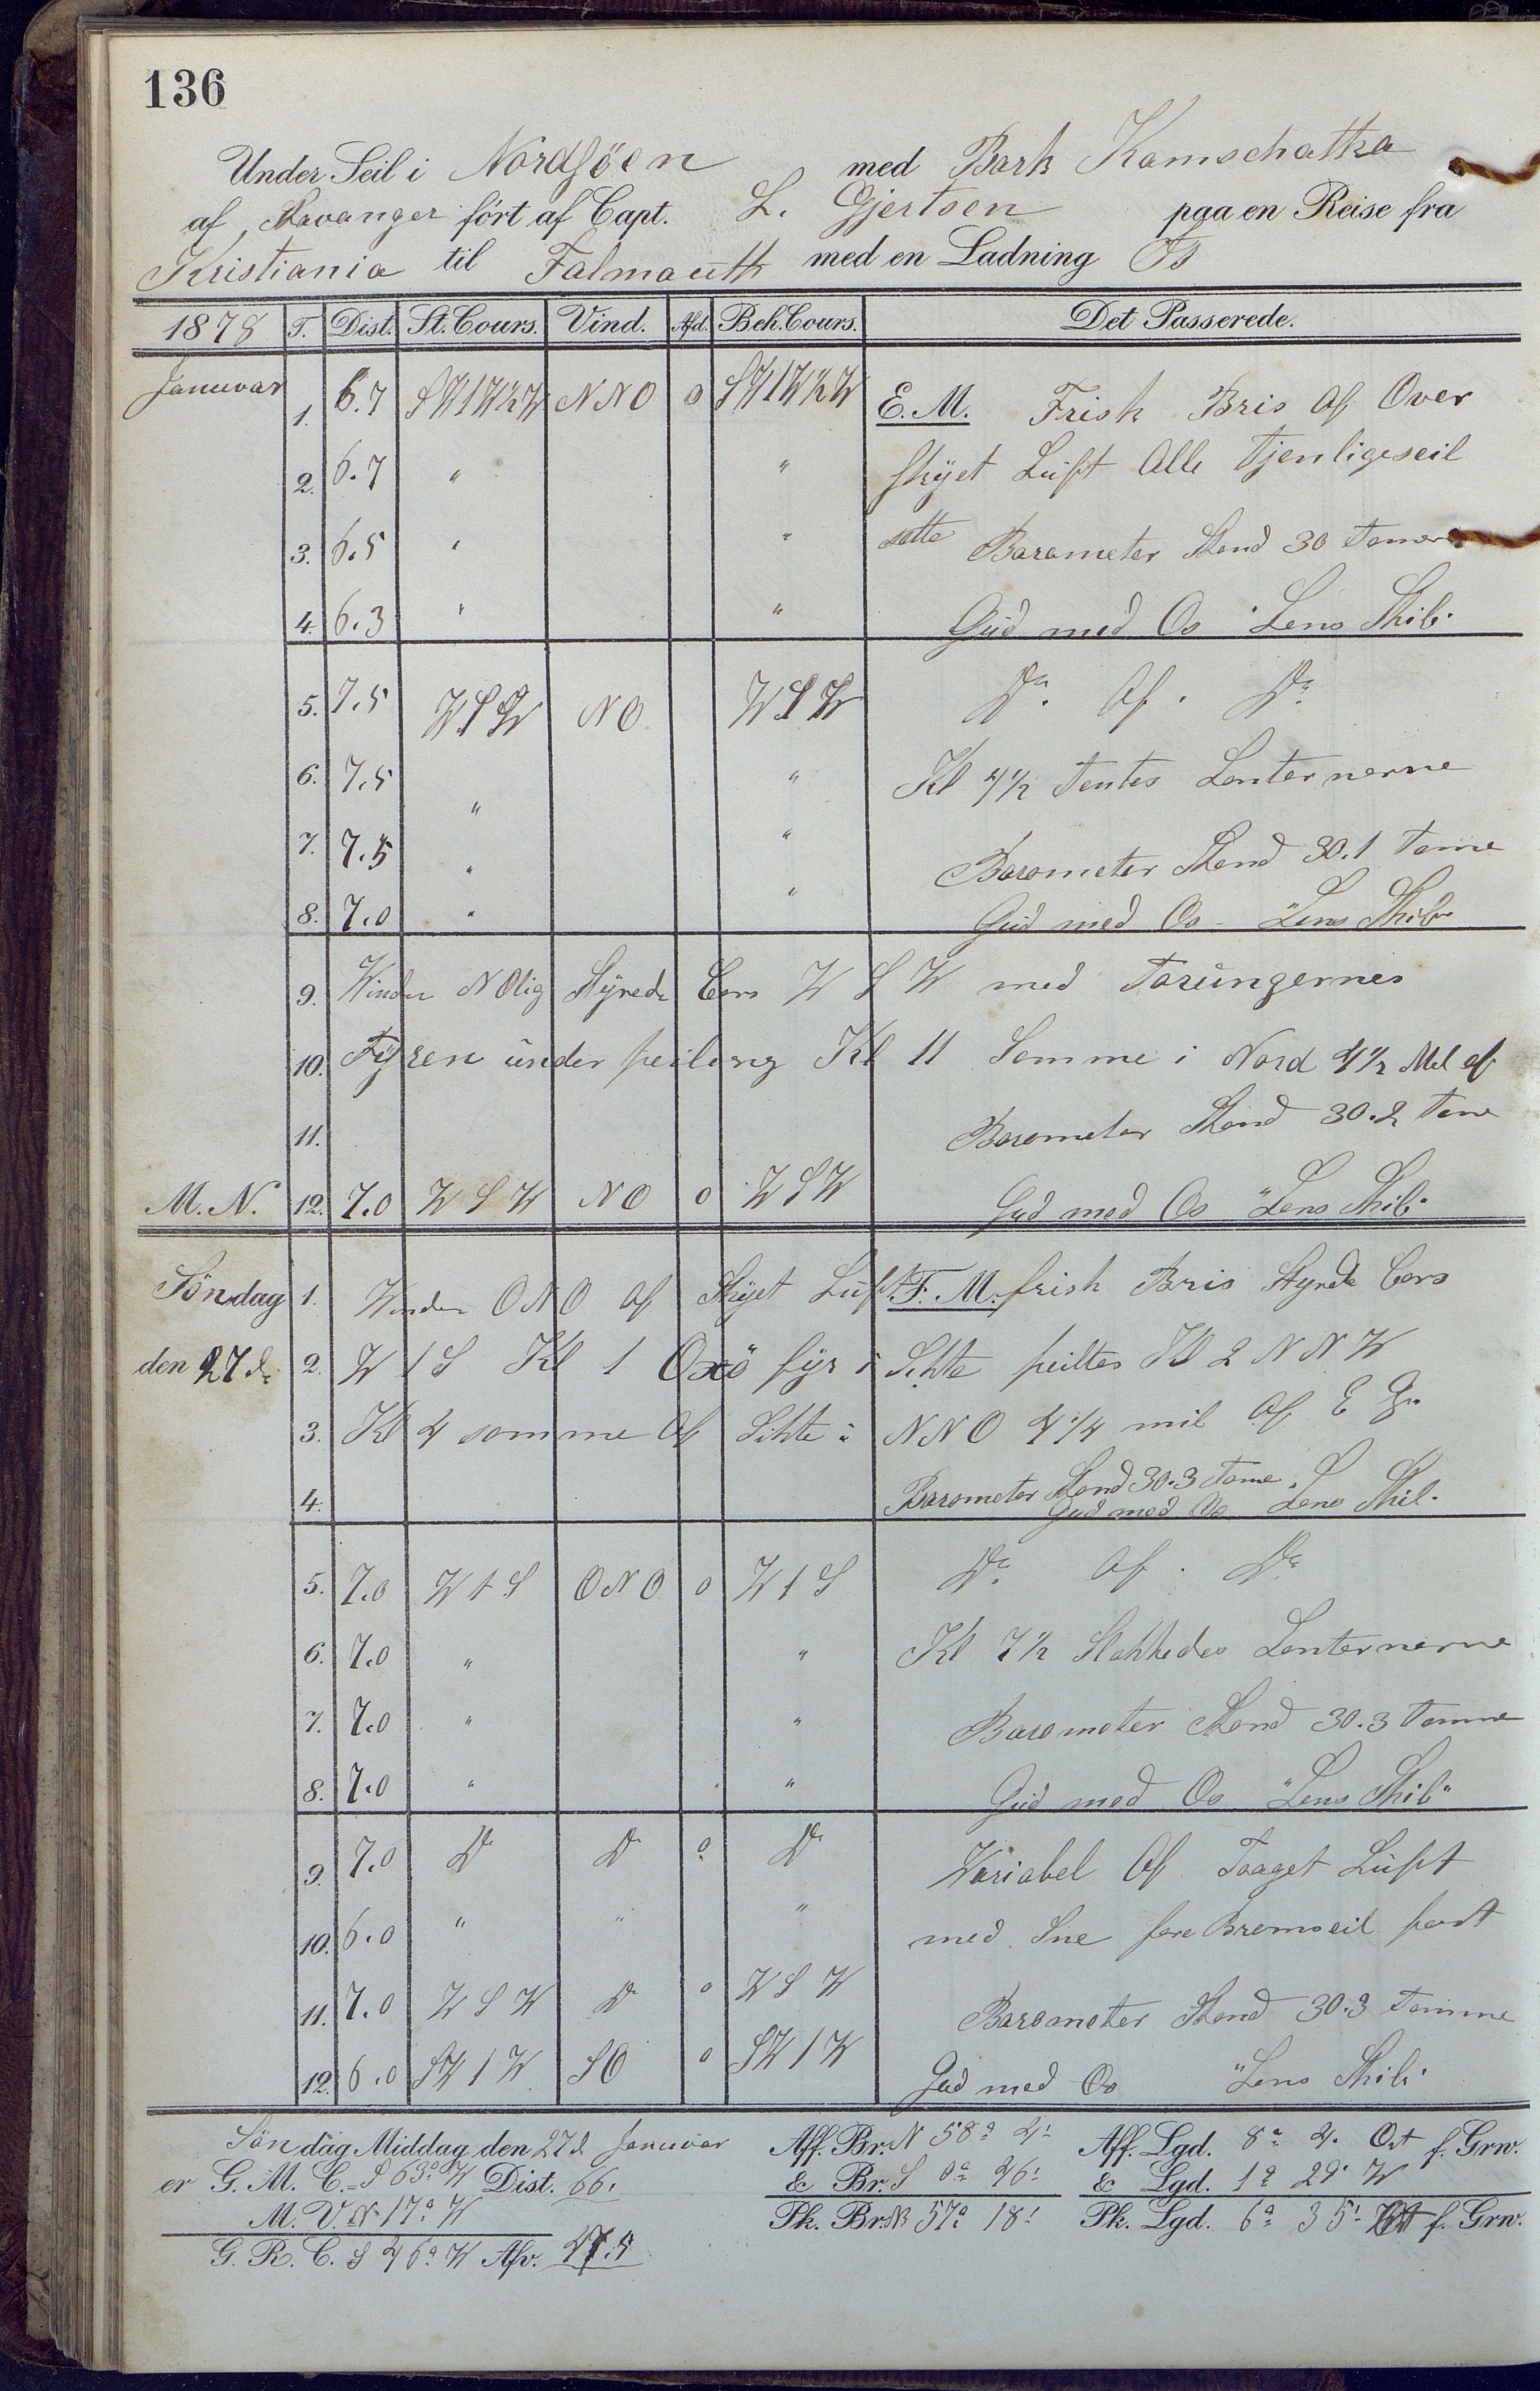 136
Under Seil i Nordsöen med Bark Kamschatka
af Stavanger fört af Capt. L. Gjertsen paa en Reise fra
Kristiania til Falmauth med en Ladning Is
1878 T. Dist. St. Cours. Vind. Afd. Beh. Cours. Det Passerede.
Januvar 1. 6.7 SW1W½W NNO 0 SW1W½W E. M. Frisk Bris Af Over
2. 6.7 " " skÿet Lüft Alle Tjenligeseil
3. 6.5 " " satte Barometer Stand 30 Tomer
4. 6.3 " " Güd med Os "Lens Skib"
5. 7.5 WSW NO WSW Do. Af. Do.
6. 7.5 " " Kl 4½ Tentes Lanternerne
7. 7.5 " " Barometer Stand 30.1 Tome
8. 7.0 " " Güd med Os "Lens Skib"
9. Winden NOlig Stÿrede Cors W S W med Torüngernes
10. Fÿren ünder peiling Kl 11 Somme i Nord 4½ Mil af
11. Barometer Stand 30.2 Tome
M. N. 12. 7.0 WSW NO 0 WSW Gud med Os "Lens Skib"
Söndag 1. Winden ONO af Skÿet Lüft. F. M. frisk Bris Styrede Cors
den 27de 2. W 1 S Kl 1 Oxö fÿr i Sikte peiltes Kl 2 NNW
3. Kl 4 somme Af Sikte i NNO 4 1/4 mil Af
4. Barometer Stand 30.3 Tome
Gud med Os "Lens Skib"
5. 7.0 W1S ONO 0 W1S Do. Af. Do.
6. 7.0 " " Kl 7½ Slakkedes Lanternerne
7. 7.0 " " Barometer Stand 30.3 Tomme
8. 7.0 " " Güd med Os "Lens Skib"
9. 7.0 Do Do 0 Do Variabel Af Taaget Lüft
10. 6.0 " " " med Sne fare Bremseil fast
11. 7.0 WSW Do 0 WSW Barometer Stand 30.3 Tomme
12. 6.0 SW1W SO 0 SW1W Gud med Os "Lens Skib"
Söndag Middag den 27d Januvar Aff. Br. N 58° 4' Aff. Lgd. 8° 4' Ost f. Grw.
er G. M. C. S 63° W Dist. 66' & Br. S 0° 46' & Lgd. 1° 29' W
M. V. N 17° W Pk. Br. N 57° 18' Pk. Lgd. 6° 35' Ost f. Grw.
G. R. C. S 46° W Afv. 47.5